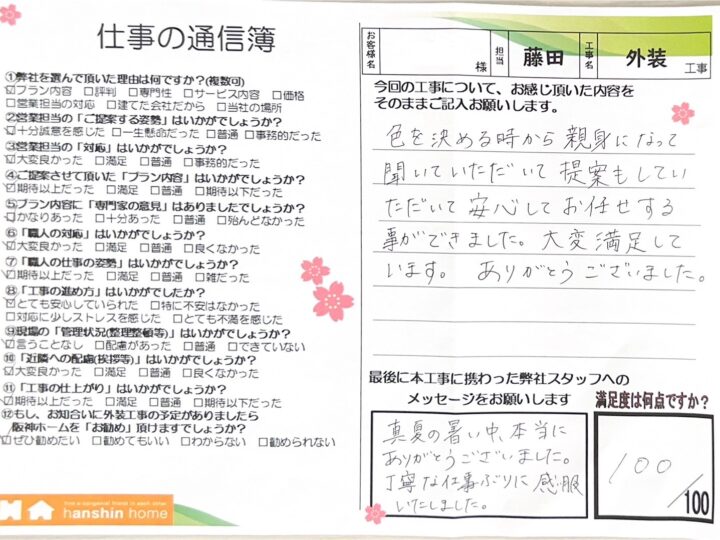 仕事の通信簿
①弊社を選んで頂いた理由は何ですか?(複数可)
☑プラン内容 □評判 □専門性 □サービス内容 □価格
□営業担当の対応 □建てた会社だから □当社の場所
②営業担当の「ご提案する姿勢」はいかがでしょうか?
☑十分誠意を感じた □一生懸命だった □普通 □事務的だった
③営業担当の「対応」はいかがでしょうか?
☑大変良かった □満足 □普通 □事務的だった
④ご提案させて頂いた「プラン内容」はいかがでしょうか?
☑期待以上だった □満足 □普通 □期待以下だった
⑤プラン内容に「専門家の意見」はありましたでしょうか?
☑かなりあった □十分あった □普通 □殆んどなかった
⑥「職人の対応」はいかがでしょうか?
☑大変良かった □満足 □普通 □良くなかった
⑦「職人の仕事の姿勢」はいかがでしょうか?
☑期待以上だった □満足 □普通 □雑だった
⑧「工事の進め方」はいかがでしたか?
☑とても安心していられた □特に不安はなかった
□対応に少しストレスを感じた □とても不満を感じた
⑨現場の「管理状況(整理整頓等)」はいかがでしょうか?
☑言うことなし □配慮があった □普通 □できていない
⑩「近隣への配慮(挨拶等)」はいかがでしょうか?
☑大変良かった □満足 □普通 □良くなかった
⑪「工事の仕上がり」はいかがでしょうか?
☑期待以上だった □満足 □普通 □期待以下だった
⑫もし、お知合いに外装工事の予定がありましたら
阪神ホームを「お勧め」頂けますでしょうか?
☑ぜひ勧めたい □勧めてもいい □わからない □勧められない
hanshin home
お客様名 様 担当 藤田 工事名 外装 工事
今回の工事について、お感じ頂いた内容を
そのままご記入お願いします。
色を決める時から親身になって
聞いていただいて提案もしてい
ただいて安心してお任せする
事ができました。大変満足して
います。 ありがとうございました。
最後に本工事に携わった弊社スタッフへの
メッセージをお願いします
真夏の暑い中、本当に
ありがとうございました。
丁寧な仕事ぶりに感服
いたしました。
満足度は何点ですか?
100
/100